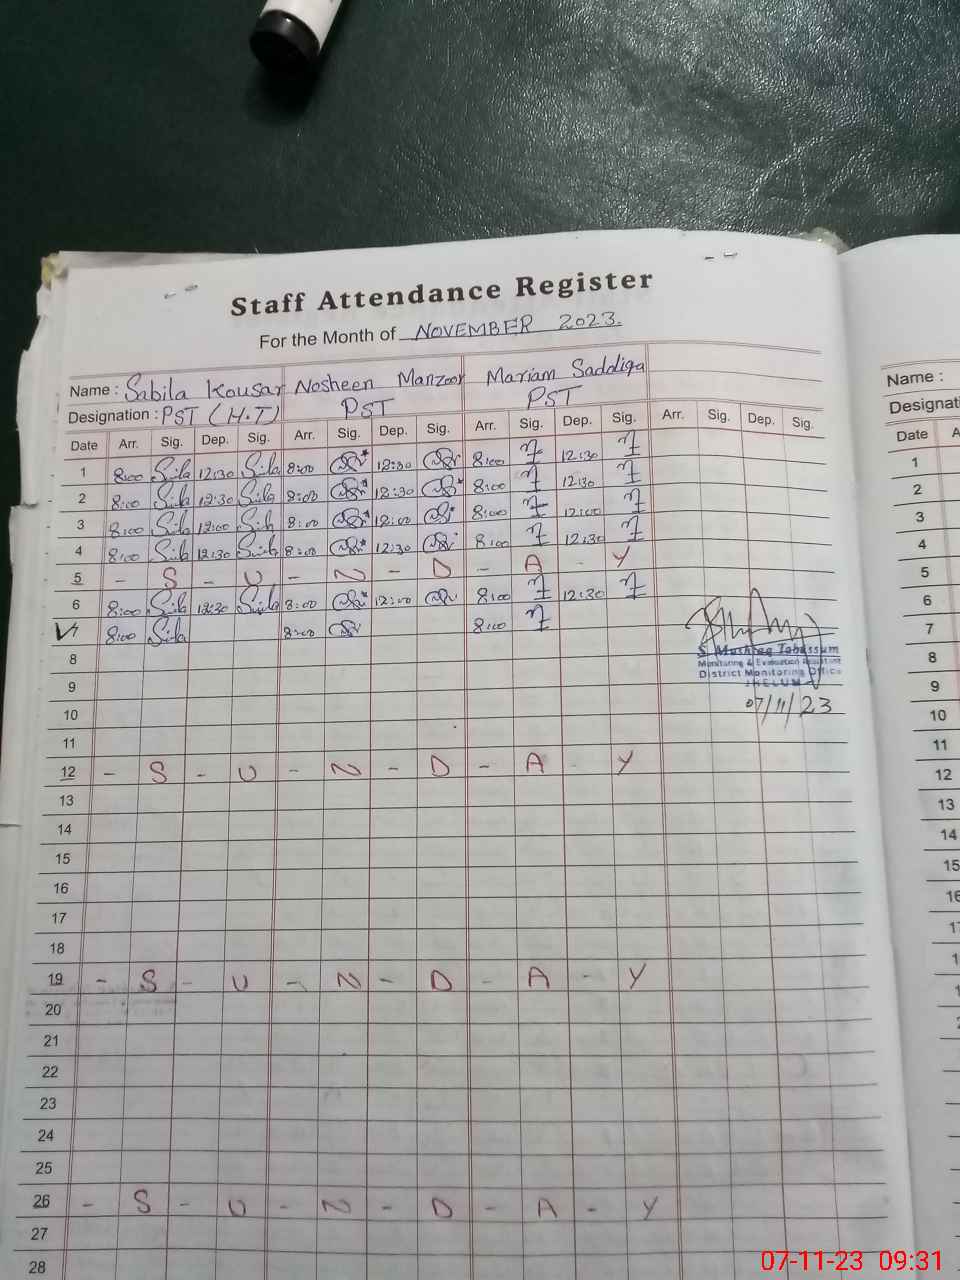 Staff Attendance Register
For the Month of NOVEMBER 2023.
Name : Sabila Kousar Nosheen Manzoor Mariam Saddiqa
Designation : PST (H.T) PST PST
Date Arr. Sig. Dep. Sig. Arr. Sig. Dep. Sig. Arr. Sig. Dep. Sig. Arr. Sig. Dep. Sig.
1 8:00 12:30 8:00 12:30 8:00 12:30
2 8:00 12:30 8:00 12:30 8:00 12:30
3 8:00 12:00 8:00 12:00 8:00 12:00
4 8:00 12:30 8:00 12:30 8:00 12:30
5 - S - U - N - D - A - Y
6 8:00 12:30 8:00 12:00 8:00 12:30
7 8:00 8:00 8:00
S. Mushtaq Tabassum
Monitoring & Evaluation Assistant
District Monitoring Office
JHELUM
07/11/23
8
9
10
11
12 - S - U - N - D - A - Y
13
14
15
16
17
18
19 - S - U - N - D - A - Y
20
21
22
23
24
25
26 - S - U - N - D - A - Y
27
28
Name :
Date
1
2
3
4
5
6
7
8
9
10
11
12
13
14
15
07-11-23 09:31